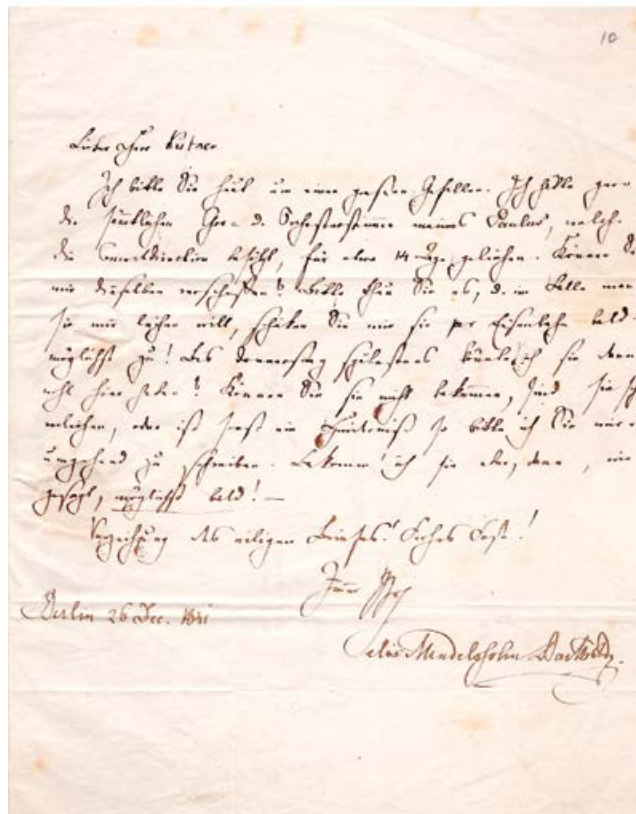 10
Lieber Herr Kistner
Ich bitte Sie heut um einen großen Gefallen. Ich hätte gern
die sämtlichen Chor- u. Orchesterstimmen meines Paulus, welche
die Concertdirection besitzt, für etwa 14 Tage geliehen. Können Sie
mir dieselben verschaffen? Bitte thun Sie es, u. im Falle man
sie mir leihen will, schicken Sie mir sie per Eisenbahn bald-
möglichst zu! Bis Donnerstag spätestens könnte ich sie dann
wohl hier haben? Können Sie sie nicht bekommen, sind sie
verliehen, oder ist sonst ein Hinderniß so bitte ich Sie mir
umgehend zu schreiben. Bekomm' ich sie aber, dann, wie
gesagt, möglichst bald! —
Verzeihung des eiligen Briefes! Frohes Fest!
Immer Ihr
Berlin 26 Dec. 1841
Felix Mendelssohn Bartholdy